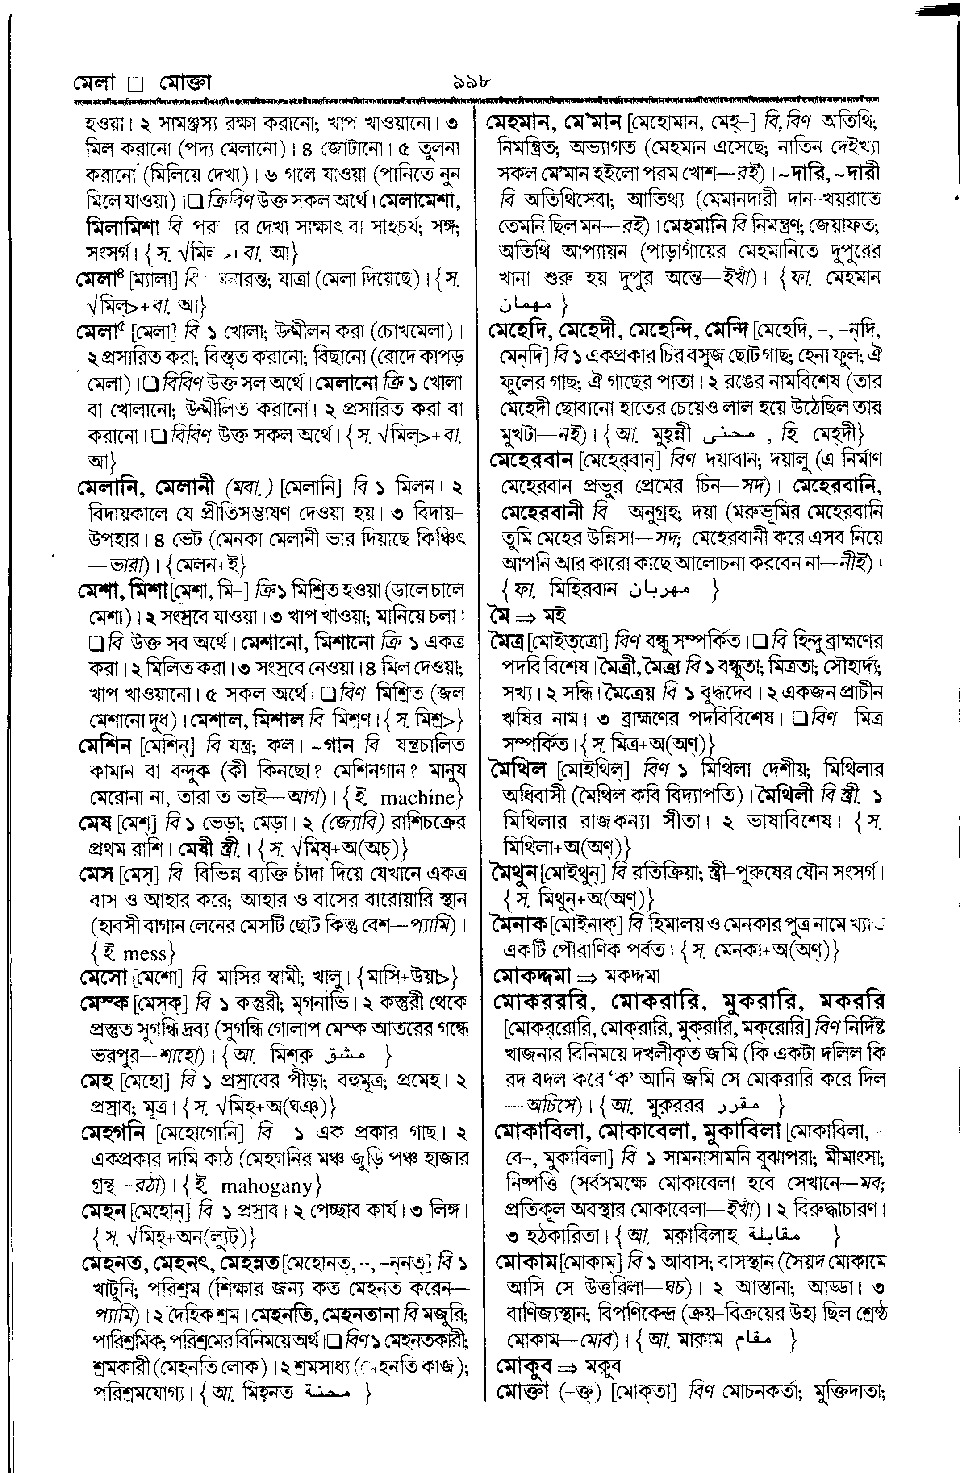 মেলা □ মোক্তা
৯৯৮
হওয়া। ২ সামঞ্জস্য রক্ষা করানো; খাপ খাওয়ানো। ৩
মিল করানো (পদ্য মেলানো)। ৪ জোটানো। ৫ তুলনা
করানো (মিলিয়ে দেখা)। ৬ গলে যাওয়া (পানিতে নুন
মিলে যাওয়া)। □ ক্রিবিণ উক্ত সকল অর্থে। মেলামেশা,
মিলামিশা বি পর র দেখা সাক্ষাৎ বা সাহচর্য; সঙ্গ;
সংসর্গ। {স. √মিল + বা. আ}
মেলা⁪⁴ [ম্যালা] বি রন্ত; যাত্রা (মেলা দিয়েছে)। {স.
√মিল্>+বা. আ}
মেলা⁵ [মেলা] বি ১ খোলা; উন্মীলন করা (চোখমেলা)।
২ প্রসারিত করা; বিস্তৃত করানো; বিছানো (রোদে কাপড়
মেলা)। □ বিবিণ উক্ত সল অর্থে। মেলানো ক্রি ১ খোলা
বা খোলানো; উন্মীলিত করানো। ২ প্রসারিত করা বা
করানো। □ বিবিণ উক্ত সকল অর্থে। {স. √মিল্>+বা.
আ}
মেলানি, মেলানী (মবা.) [মেলানি] বি ১ মিলন। ২
বিদায়কালে যে প্রীতিসম্ভাষণ দেওয়া হয়। ৩ বিদায়-
উপহার। ৪ ভেট (মেনকা মেলানী ভার দিয়াছে কিঞ্চিৎ
—ভারা)। {মেলন+ই}
মেশা, মিশা [মেশা, মি–] ক্রি ১ মিশ্রিত হওয়া (ডালে চালে
মেশা)। ২ সংস্রবে যাওয়া। ৩ খাপ খাওয়া; মানিয়ে চলা।
□ বি উক্ত সব অর্থে। মেশানো, মিশানো ক্রি ১ একত্র
করা। ২ মিলিত করা। ৩ সংস্রবে নেওয়া। ৪ মিল দেওয়া;
খাপ খাওয়ানো। ৫ সকল অর্থে। □ বিণ মিশ্রিত (জল
মেশানো দুধ)। মেশাল, মিশাল বি মিশ্রণ। {স. মিশ্র>}
মেশিন [মেশিন্] বি যন্ত্র; কল। ~গান বি যন্ত্রচালিত
কামান বা বন্দুক (কী কিনছো? মেশিনগান? মানুষ
মেরোনা না, তারা ত ভাই—আগ)। {ই. machine}
মেষ [মেশ্] বি ১ ভেড়া; মেড়া। ২ (জ্যোবি) রাশিচক্রের
প্রথম রাশি। মেষী স্ত্রী.। {স. √মিষ্+অ(অচ্)}
মেস [মেস্] বি বিভিন্ন ব্যক্তি চাঁদা দিয়ে যেখানে একত্র
বাস ও আহার করে; আহার ও বাসের বারোয়ারি স্থান
(হাবসী বাগান লেনের মেসটি ছোট কিন্তু বেশ—প্যামি)।
{ই mess}
মেসো [মেশো] বি মাসির স্বামী; খালু। {মাসি+উয়া>}
মেস্ক [মেস্ক্] বি ১ কস্তুরী; মৃগনাভি। ২ কস্তুরী থেকে
প্রস্তুত সুগন্ধি দ্রব্য (সুগন্ধি গোলাপ মেস্ক আতরের গন্ধে
ভরপুর—শাহো)। {আ. মিশ্ক مشق }
মেহ [মেহো] বি ১ প্রস্রাবের পীড়া; বহুমূত্র; প্রমেহ। ২
প্রস্রাব; মূত্র। {স. √মিহ্+অ(ঘঞ্)}
মেহগনি [মেহোগোনি] বি ১ এক প্রকার গাছ। ২
একপ্রকার দামি কাঠ (মেহগনির মঞ্চ জুড়ি পঞ্চ হাজার
গ্রন্থ -রঠা)। {ই mahogany}
মেহন [মেহোন্] বি ১ প্রস্রাব। ২ পেচ্ছাব কার্য। ৩ লিঙ্গ।
{স. √মিহ্+অন(ল্যুট্)}
মেহনত, মেহনৎ, মেহন্নত [মেহোনত্, -, -ন্নত্] বি ১
খাটুনি; পরিশ্রম (শিক্ষার জন্য কত মেহনত করেন—
প্যামি)। ২ দৈহিক শ্রম। মেহনতি, মেহনতানা বি মজুরি;
পারিশ্রমিক; পরিশ্রমের বিনিময়ে অর্থ। □ বিণ ১ মেহনতকারী;
শ্রমকারী (মেহনতি লোক)। ২ শ্রমসাধ্য (মেহনতি কাজ);
পরিশ্রমযোগ্য। {আ. মিহ়নত محنة }
মেহমান, মে'মান [মেহোমান, মেহ্–] বি, বিণ অতিথি;
নিমন্ত্রিত; অভ্যাগত (মেহমান এসেছে; নাতিন দেইখ্যা
সকল মে'মান হইলো পরম খোশ—রই)। ~দারি, ~দারী
বি অতিথিসেবা; আতিথ্য (মেমানদারী দান-খয়রাতে
তেমনি ছিল মন—রই)। মেহমানি বি নিমন্ত্রণ; জেয়াফত;
অতিথি আপ্যায়ন (পাড়াগাঁয়ের মেহমানিতে দুপুরের
খানা শুরু হয় দুপুর অন্তে—ইখাঁ)। {ফা. মেহমান
مهمان }
মেহেদি, মেহেদী, মেহেন্দি, মেন্দি [মেহেদি, -, -ন্‌দি,
মেন্‌দি] বি ১ একপ্রকার চির বসুজ ছোট গাছ; হেনা ফুল; ঐ
ফুলের গাছ; ঐ গাছের পাতা। ২ রঙের নামবিশেষ (তার
মেহেদী ছোবানো হাতের চেয়েও লাল হয়ে উঠেছিল তার
মুখটা—নই)। {আ. মুহ়ন্নী محنى , হি মেহ্‌দী}
মেহেরবান [মেহের্‌বান্] বিণ দয়াবান; দয়ালু (এ নির্মাণ
মেহেরবান প্রভুর প্রেমের চিন—সদ)। মেহেরবানি,
মেহেরবানী বি অনুগ্রহ; দয়া (মরুভূমির মেহেরবানি
তুমি মেহের উন্নিসা—সদ; মেহেরবানী করে এসব নিয়ে
আপনি আর কারো কাছে আলোচনা করবেন না—নীই)।
{ফা. মিহিরবান مهربان }
মৈ ⇒ মই
মৈত্র [মোইত্‌ত্রো] বিণ বন্ধু সম্পর্কিত। □ বি হিন্দু ব্রাহ্মণের
পদবি বিশেষ। মৈত্রী, মৈত্র্য বি ১ বন্ধুতা; মিত্রতা; সৌহার্দ্য;
সখ্য। ২ সন্ধি। মৈত্রেয় বি ১ বুদ্ধদেব। ২ একজন প্রাচীন
ঋষির নাম। ৩ ব্রাহ্মণের পদবিবিশেষ। □ বিণ মিত্র
সম্পর্কিত। {স. মিত্র+অ(অণ্)}
মৈথিল [মোইথিল্] বিণ ১ মিথিলা দেশীয়; মিথিলার
অধিবাসী (মৈথিল কবি বিদ্যাপতি)। মৈথিলী বি স্ত্রী. ১
মিথিলার রাজকন্যা সীতা। ২ ভাষাবিশেষ। {স.
মিথিলা+অ(অণ্)}
মৈথুন [মোইথুন্] বি রতিক্রিয়া; স্ত্রী-পুরুষের যৌন সংসর্গ।
{স. মিথুন+অ(অণ্)}
মৈনাক [মোইনাক্] বি হিমালয় ও মেনকার পুত্র নামে
একটি পৌরাণিক পর্বত। {স. মেনকা+অ(অণ্)}
মোকদ্দমা ⇒ মকদ্দমা
মোকররি, মোকরারি, মুকরারি, মকররি
[মোকর্‌রোরি, মোক্‌রারি, মুক্‌রারি, মক্‌রোরি] বিণ নির্দিষ্ট
খাজনার বিনিময়ে দখলীকৃত জমি (কি একটা দলিল কি
রদ বদল করে 'ক' আনি জমি সে মোকরারি করে দিল
—অচিসে)। {আ. মুকররর مقرر }
মোকাবিলা, মোকাবেলা, মুকাবিলা [মোকাবিলা, -
বে-, মুকাবিলা] বি ১ সামনাসামনি বুঝাপরা; মীমাংসা;
নিষ্পত্তি (সর্বসমক্ষে মোকাবেলা হবে সেখানে—মব;
প্রতিকূল অবস্থার মোকাবেলা—ইখাঁ)। ২ বিরুদ্ধাচারণ।
৩ হঠকারিতা। {আ. মক়াবিলাহ مقابلة }
মোকাম [মোকাম্] বি ১ আবাস; বাসস্থান (সৈয়দ মোকামে
আসি সে উত্তরিলা—ঘচ)। ২ আস্তানা; আড্ডা। ৩
বাণিজ্যস্থান; বিপণিকেন্দ্র (ক্রয়-বিক্রয়ের উহা ছিল শ্রেষ্ঠ
মোকাম—মোব)। {আ. মাক়াম مقام }
মোকুব ⇒ মকুব
মোক্তা (-ক্তৃ) [মোক্‌তা] বিণ মোচনকর্তা; মুক্তিদাতা;